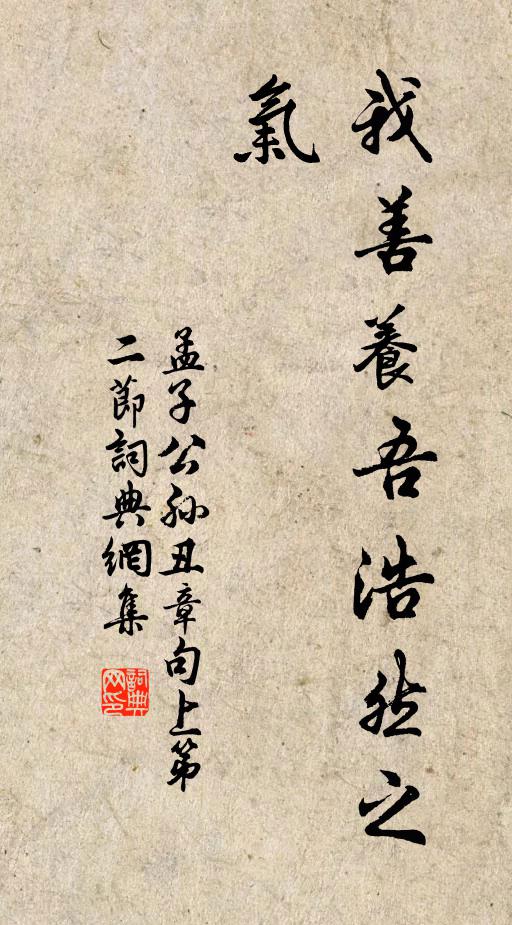 我善養吾浩然之
氣
孟子公孫丑章句上第
二節詞典網集
詞典
网印